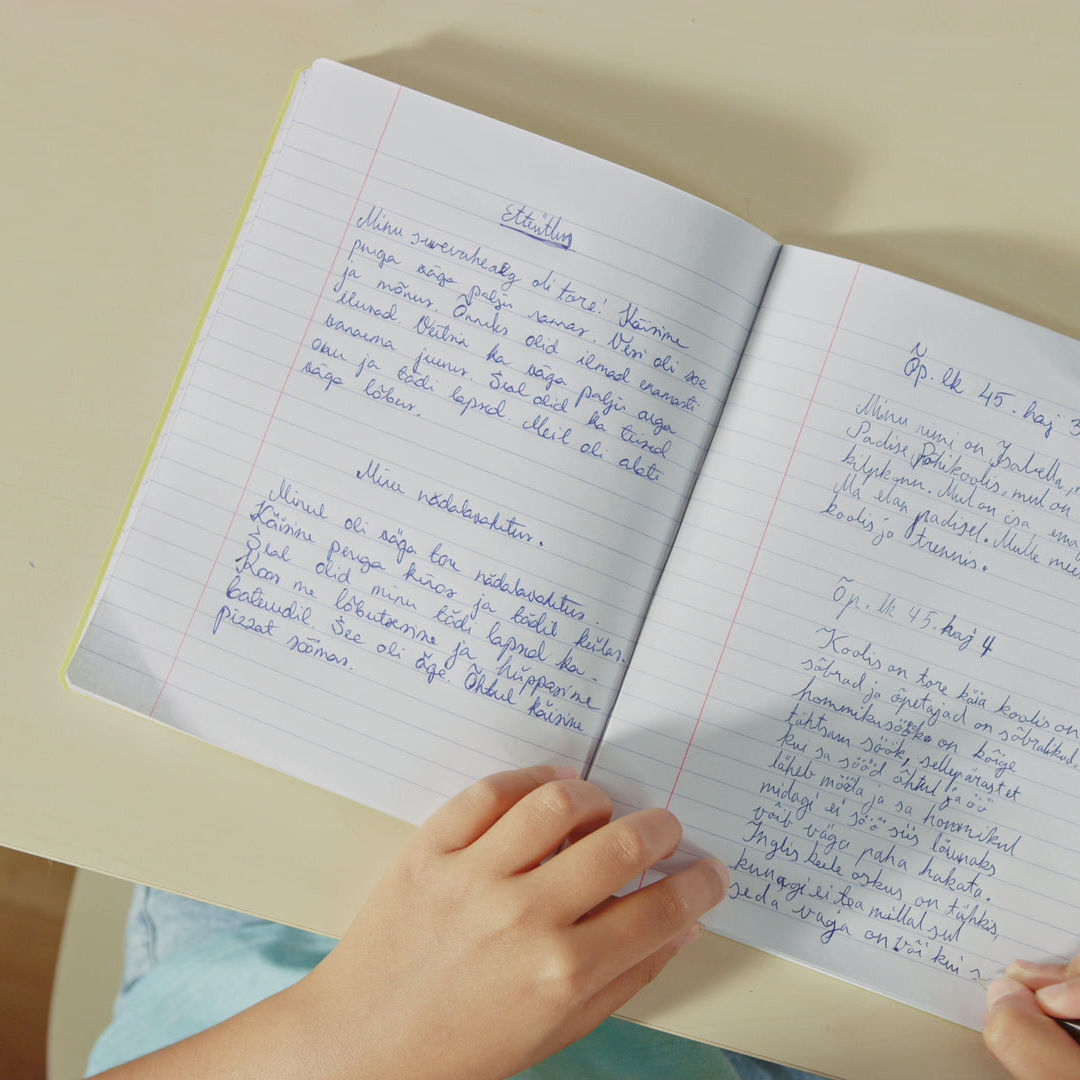 Etteütlus
Minu suvevaheaeg oli tore! Käisime
peuga väga palju rannas. Vesi oli soe
ja mõnus. Õnneks olid ilmad enamasti
ilusad. Veetsin ka väga palju aega
vanaema juures. Seal olid ka teised
onu ja tädi lapsed. Meil oli alati
väga lõbus.
Minu nädalavahetus.
Minul oli väga tore nädalavahetus.
Käisime perega kinos ja tädil külas.
Seal olid minu tädi lapsed ka.
Koos me lõbutsesime ja hüppasime
batuudil. See oli äge. Õhtul käisime
pizzat söömas.
Õp. lk 45. harj 3
Minu nimi on Isabella,
Padise Põhikoolis. mul on
kilpkonn. Mul on isa, ema
Ma elan padisel. Mulle
koolis ja trennis.
Õp. lk 45. harj 4
Koolis on tore käia koolis on
sõbrad ja õpetajad on sõbralikud.
hommikusöök on kõige
tähtsam söök, sellepärast et
kui sa sööd õhtul ja öö
läheb mööda ja sa hommikul
midagi ei söö siis lõunaks
võib väga paha hakata.
Inglis keele oskus on tähtis,
kunagi ei tea millal sul
seda vaja on või kui s